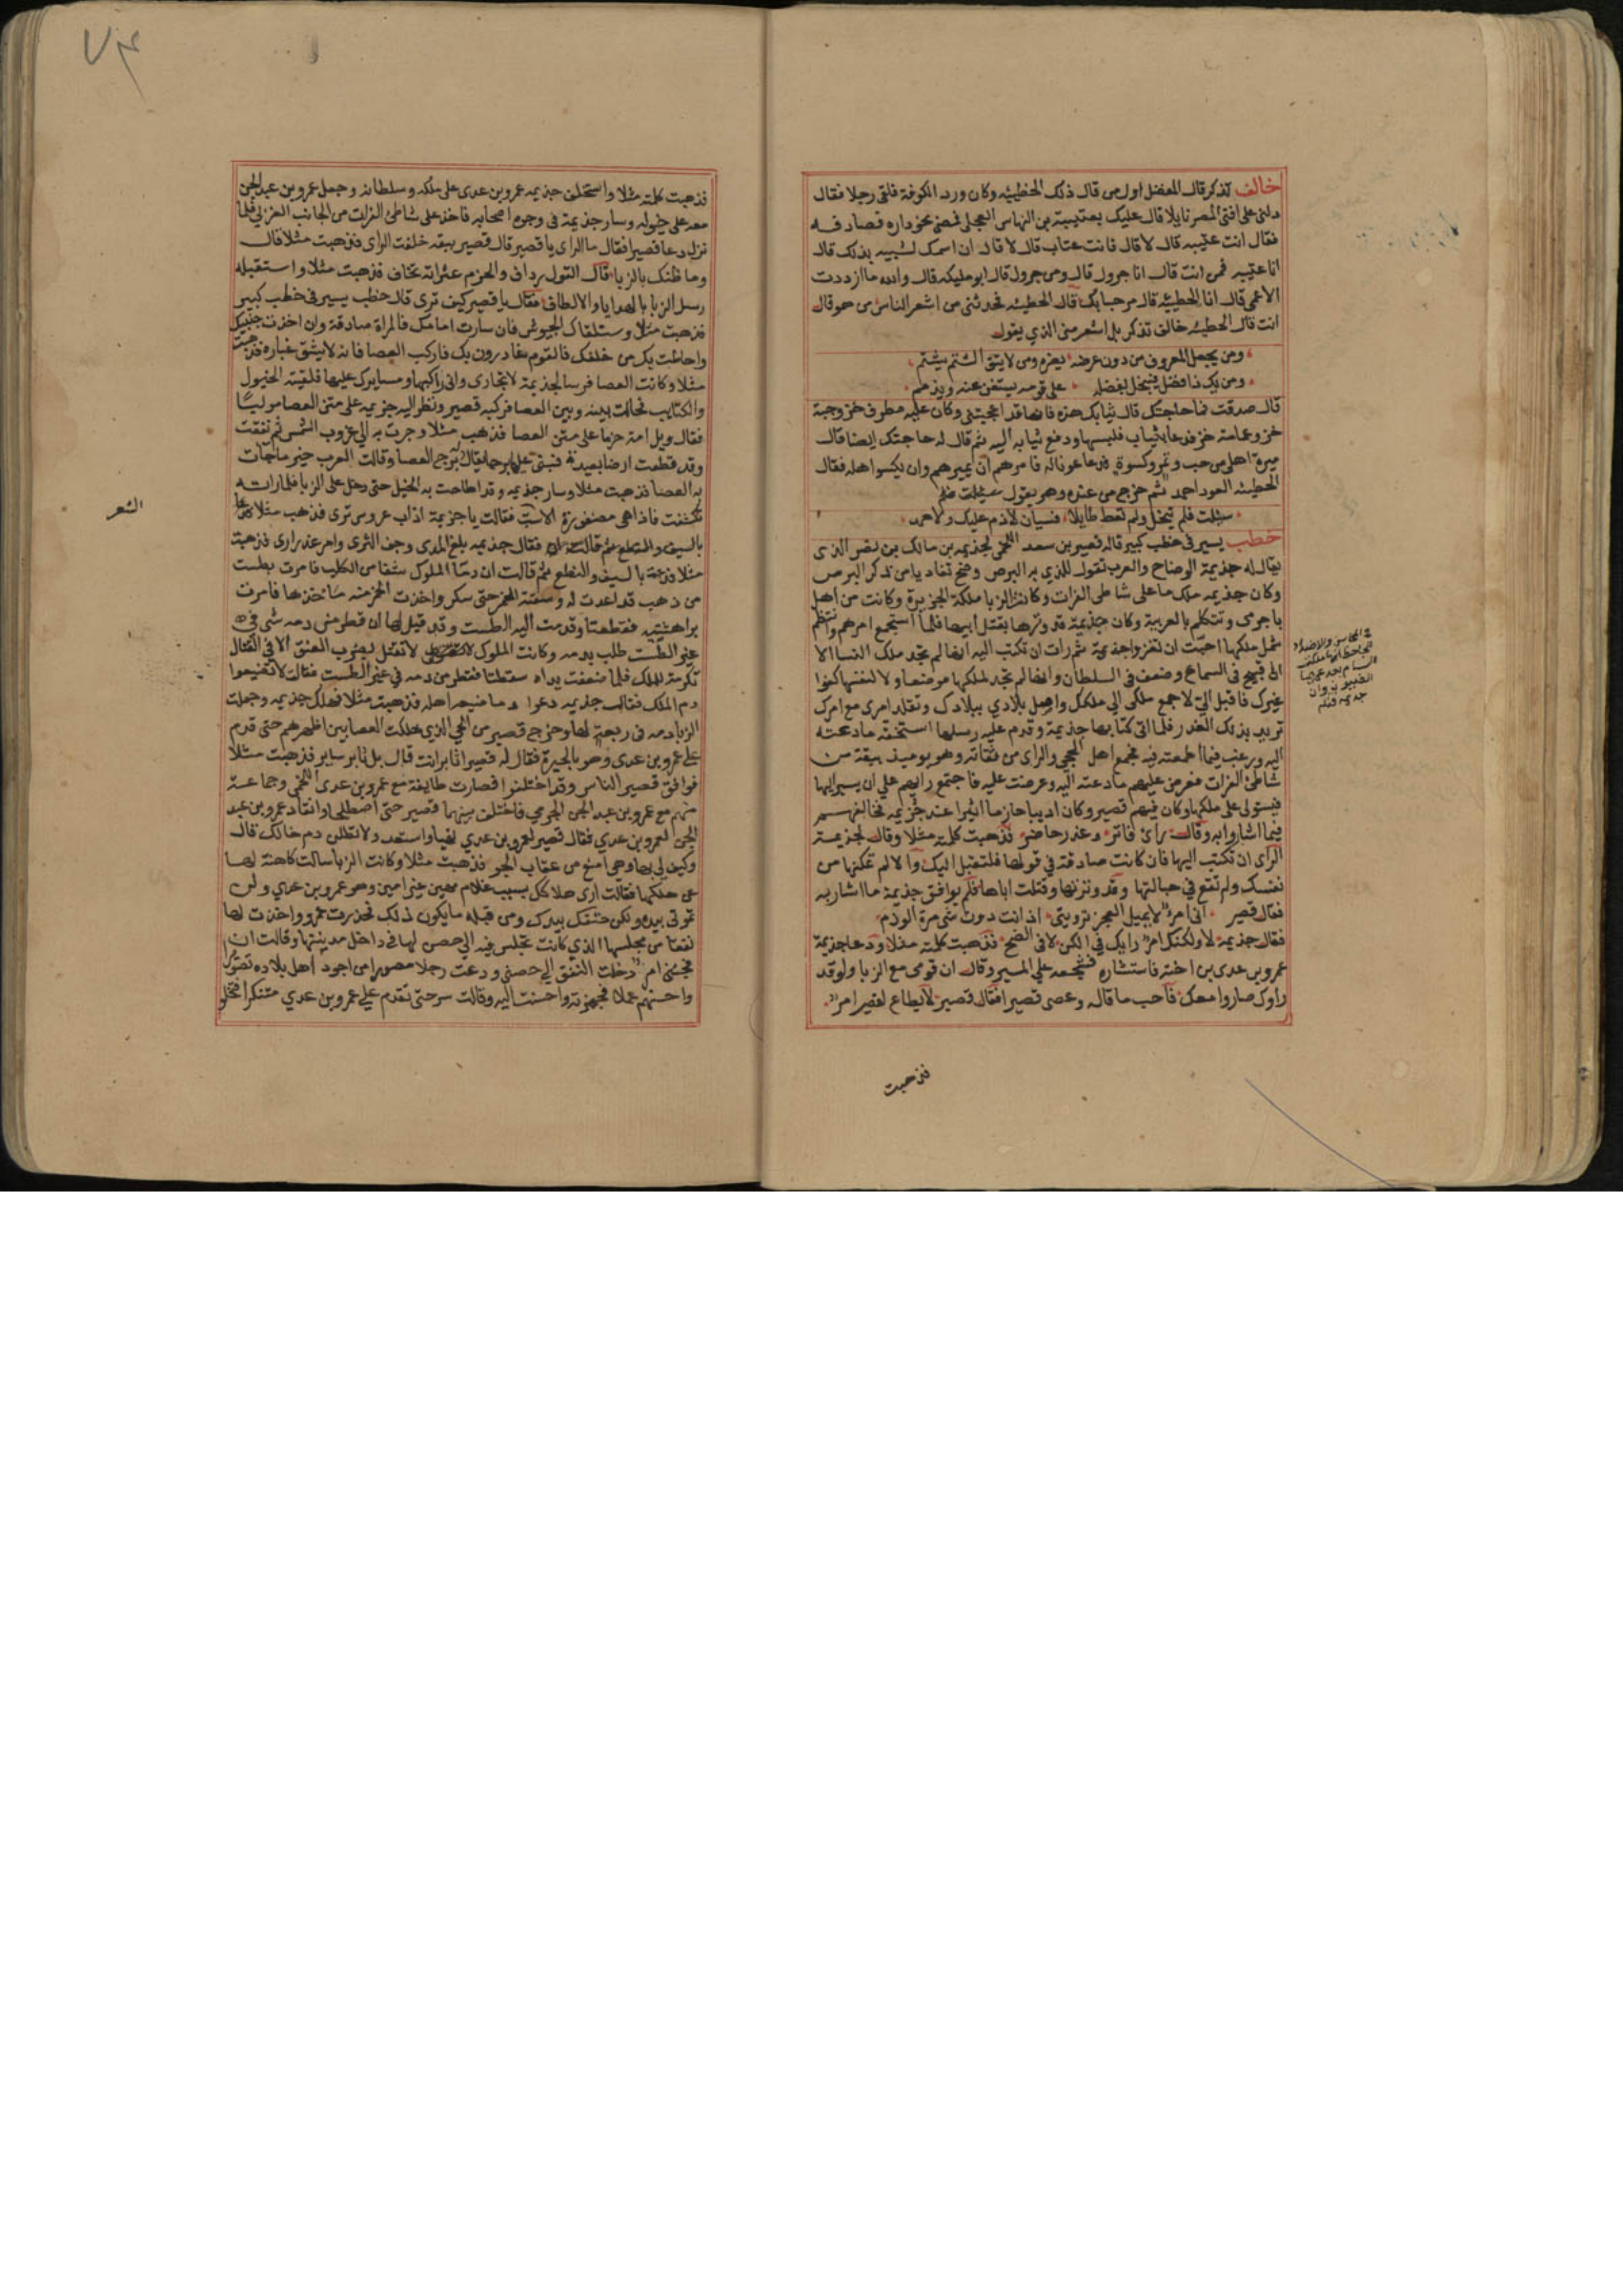 خالف تذكر قال المفضل اول من قال ذلك الحطيئه وكان ورد الكوفة فلقى رجلا فقال
دلنى على افتى المصر نايلا قال عليك بعتيبة بن النهاس العجلى فمضى نحو داره فصادفه
فقال انت عتيبه قال لا قال فانت عتاب قال لا قال ان اسمك لشبيه بذلك قال
انا عتيبه فمن انت قال انا جرول قال ومن جرول قال ابو مليكه قال والله ما ازددت
الا عمى قال انا الحطيئه قال مرحبا بك قال الحطيئه فحدثنى من اشعر الناس من هو قال
انت قال الحطيئه خالف تذكر بل اشعر منى الذي يقول
ومن يجعل المعروف من دون عرضه يفره ومن لا يتق الشتم يشتم
ومن يك ذا فضل فيبخل بفضله على قومه يستغن عنه ويذمم
قال صدقت فما حاجتك قال ثيابك هذه فانها قد اعجبتنى وكان عليه مطرف خز وجبة
خز وعمامة خز فدعا بثياب فلبسها ودفع ثيابه اليه ثم قال له حاجتك ايضا قال
ميرة اهلى من حب وتمر وكسوة فدعا عونا له فامرهم ان يميرهم وان يكسوا اهله فقال
الحطيئه العود احمد ثم خرج من عنده وهو يقول سيئلت فلم
سيئلت فلم تبخل ولم تعط طايلا فسيان لا ذم عليك ولا حمد
خطب يسير فى خطب كبير قاله قصير بن سعد اللخمى لجذيمه بن مالك بن نصر الذى
يقال له جذيمة الوضاح والعرب تقول للذي به البرص وضح تفاديا من ذكر البرص
وكان جذيمه ملك ما على شاطى الفرات وكانت الزبا ملكة الجزيرة وكانت من اهل
باجرمى وتتكلم بالعربية وكان جذيمة قد وترها بقتل ابيها فلما استجمع امرهم وانتظم
شمل ملكها احبت ان تغزو جذيمة ثم رات ان تكتب اليه انها لم تجد ملك النسا الا
الى قبيح فى السماع وضعف فى السلطان وانها لم تجد لملكها موضعا ولا لنفسها كفوا
غيرك فاقبل الى لاجمع ملكى الى ملكك واصل بلادي ببلادك وتقلد امرى مع امرك
تريد بذلك الغدر فلما اتى كتابها جذيمة وقدم عليه رسلها استخفه ما دعته
اليه ورغب فيما اطمعته فيه فجمع اهل الحجى والراى من ثقاته وهو يوميذ ببقة من
شاطى الفرات فعرض عليهم ما دعته اليه وعرضت عليه فاجتمع رايهم على ان يسير اليها
فيستولى على ملكها وكان فيهم قصير وكان اديبا حازما اثيرا عند جذيمه فخالفهم
فيما اشاروا به وقال راى فاتر وعذر حاضر فذهبت كلمته مثلا وقال لجذيمة
الراى ان تكتب اليها فان كانت صادقة في قولها فلتقبل اليك والا لم تمكنها من
نفسك ولم تقع في حبالتها وقد وترتها وقتلت اباها فلم يوافق جذيمة ما اشار به
فقال قصير انى امرؤ لا يميل العجز ترويتى اذ انت دون شى مرة الوذم
فقال جذيمة لا ولكنك امرؤ رايك في الكن لا في الضح فذهبت كلمته مثلا ودعا جذيمة
عمرو بن عدى بن اخته فاستشاره فشجعه علي المسير وقال ان قومى مع الزبا ولو قد
راوك صاروا معك فاحب ما قاله وعصى قصيرا فقال قصير لا يطاع لقصير امر
فذهبت
فى المحاسن والاضداد
للجاحظ انها ملكت
الشام بعد عمها
الضيزن وان
جذيمه قتلم
٧٣
فذهبت كلمته مثلا واستخلف جذيمه عمرو بن عدى على ملكه وسلطانه وجعل عمرو بن عبد الجن
معه على خيوله وسار جذيمة فى وجوه اصحابه فاخذ على شاطى الفرات من الجانب الغربي فلما
نزل دعا قصيرا فقال ما الراى يا قصير قال قصير ببقه خلفت الراى فذهبت مثلا قال
وما ظنك بالزبا قال القول رداف والحزم عثراته تخاف فذهبت مثلا واستقبله
رسل الزبا بالهدايا والالطاف فقال يا قصير كيف ترى قال خطب يسير فى خطب كبير
فذهبت مثلا وستلقاك الجيوش فان سارت امامك فالمراة صادقة وان اخذت جنبيك
واحاطت بك من خلفك فالقوم غادرون بك فاركب العصا فانه لا يشق غباره فذهبت
مثلا وكانت العصا فرسا لجذيمة لا تجارى وانى راكبها ومسايرك عليها فلقيته الخيول
والكتايب فحالت بينه وبين العصا فركبه قصير ونظر اليه جذيمه على متن العصا موليا
فقال ويل امه حزما على متن العصا فذهب مثلا وجرت به الي غروب الشمس ثم نفقت
وقد قطعت ارضا بعيدة فبنى عليها برجا يقال له برج العصا وقالت العرب خير ما جات
به العصا فذهبت مثلا وسار جذيمه وقد احاطت به الخيل حتى دخل على الزبا فلما راته
تكشفت فاذا هى مضفورة الاسب فقالت يا جذيمة اذاب عروس ترى فذهب مثلا
فقال جذيمه بلغ المدى وجف الثرى وامر غدر ارى فذهبت
مثلا ودعت بالسيف والنطع ثم قالت ان دما الملوك شفا من الكلب فامرت بطست
من ذهب قد اعدت له وسقته الخمر حتى سكر واخذت الخمر منه ماخذها فامرت
براهشيه فقطعتا وقدمت اليه الطست وقد قيل لها ان قطر من دمه شى فى
غير الطست طلب بدمه وكانت الملوك لا تقتل بضرب العنق الا فى القتال
تكرمة للملك فلما ضعفت يداه سقطتا فقطر من دمه في غير الطست فقالت لا تضيعوا
دم الملك فقال جذيمه دعوا دما ضيعه اهله فذهبت مثلا فهلك جذيمه وجعلت
الزبا دمه فى ربعة لها وخرج قصير من الحي الذي هلكت العصا بين اظهرهم حتى قدم
علي عمرو بن عدى وهو بالحيرة فقال له قصير اثاير انت قال بل ثاير ساير فذهبت مثلا
فوافق قصير الناس وقد اختلفوا فصارت طايفة مع عمرو بن عدى اللخمى وجماعة
منهم مع عمرو بن عبد الجن الجرمي فاختلف بينهما قصير حتى اصطلحا وانقاد عمرو بن عبد
الجن لعمرو بن عدي فقال قصير لعمرو بن عدي تهيا واستعد ولا تطلن دم خالك قال
وكيف لي بها وهي امنع من عقاب الجو فذهبت مثلا وكانت الزبا سالت كاهنة لها
عن هلكها فقالت ارى هلاكك بسبب غلام مهين غير امين وهو عمرو بن عدي ولن
تموتى بيده ولكن حتفك بيدك ومن قبله ما يكون ذلك فحذرت عمرو واتخذت لها
نفقا من مجلسها الذي كانت تجلس فيه الي حصن لها فى داخل مدينتها وقالت ان
فجئنى امر دخلت النفق الي حصنى ودعت رجلا مصورا من اجود اهل بلاده تصويرا
واحسنهم عملا فجهزته واحسنت اليه وقالت سر حتى تقدم علي عمرو بن عدي متنكرا فتخلو
الشعر